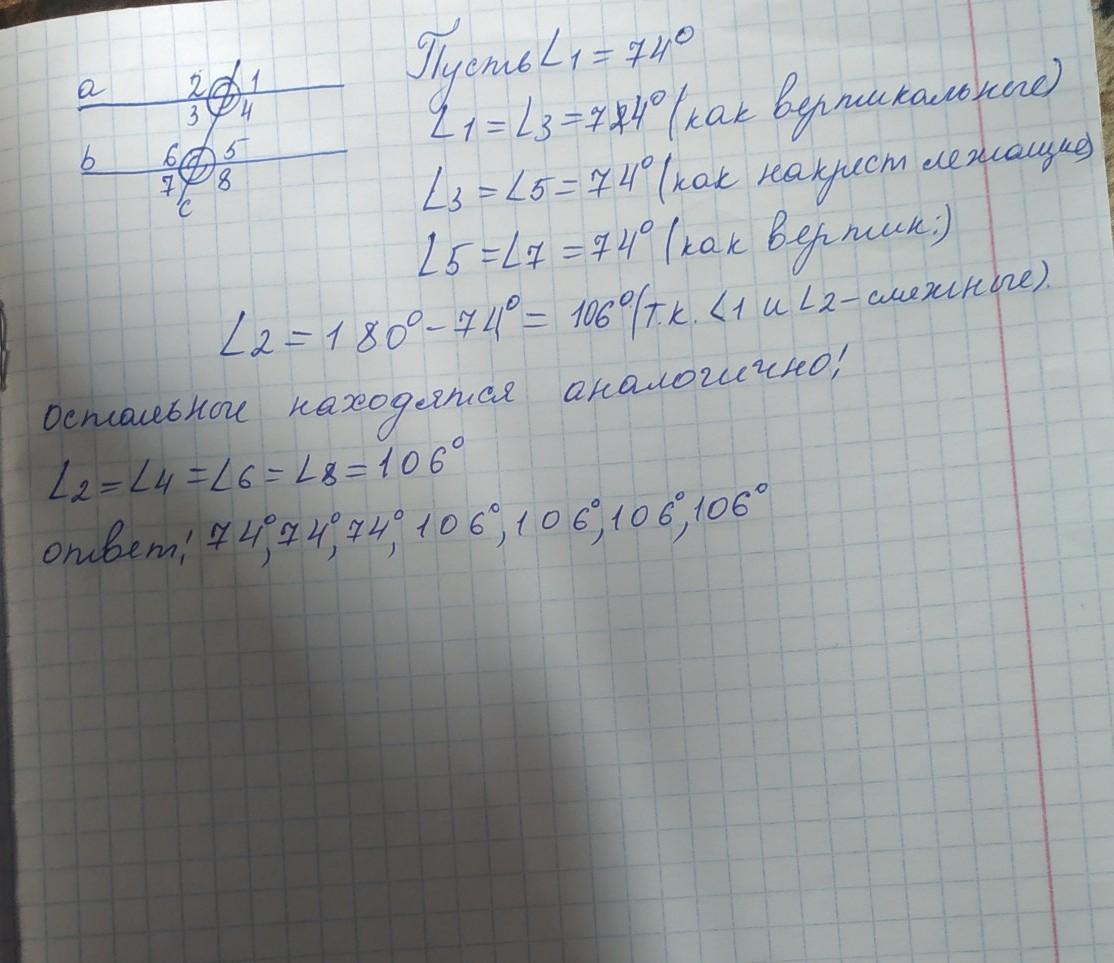 a 2 1
3 4
b 6 5
7 8
c
Пусть ∠1 = 74°
∠1 = ∠3 = 74° (как вертикальные)
∠3 = ∠5 = 74° (как накрест лежащие)
∠5 = ∠7 = 74° (как вертик.)
∠2 = 180° - 74° = 106° (т.к. ∠1 и ∠2 - смежные).
Остальные находятся аналогично!
∠2 = ∠4 = ∠6 = ∠8 = 106°
ответ! 74°, 74°, 74°, 106°, 106°, 106°, 106°